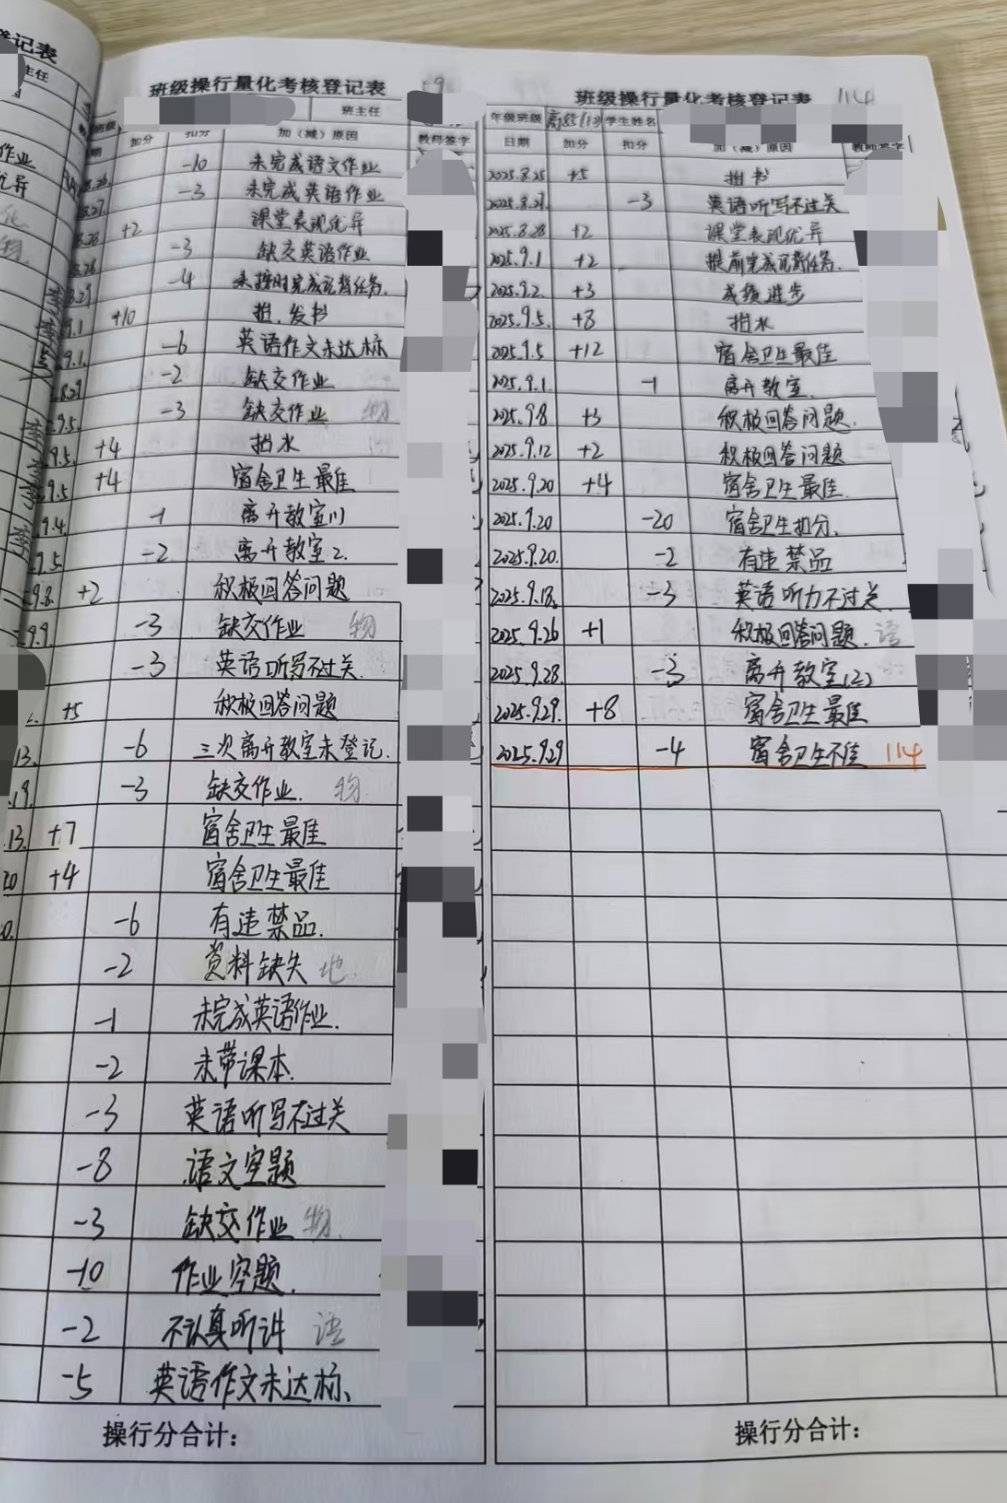 登记表
主任
作业
优异
班级操行量化考核登记表 59
班主任
加分 扣分 加（减）原因 教师签字
-10 未完成语文作业
-3 未完成英语作业
+2 课堂表现优异
-3 缺交英语作业
8.29 -4 未按时完成记背任务.
9.1 +10 担、发书
9.1. -6 英语作文未达标
8.29 -2 缺交作业
9.5 -3 缺交作业 物
9.5. +4 抬水
9.5 +4 宿舍卫生最佳
9.4. -1 离开教室
9.5 -2 离开教室2.
9.8. +2 积极回答问题
9.9. -3 缺交作业 物
-3 英语听写不过关.
+5 积极回答问题
13. -6 三次离开教室未登记.
19. -3 缺交作业. 物
13. +7 宿舍卫生最佳
20 +4 宿舍卫生最佳
-6 有违禁品.
-2 资料缺失 地
-1 未完成英语作业.
-2 未带课本.
-3 英语听写不过关
-8 语文空题
-3 缺交作业 物.
-10 作业空题.
-2 不认真听讲 语
-5 英语作文未达标、
操行分合计：
班级操行量化考核登记表 114
年级班级 学生姓名
日期 加分 扣分 加（减）原因 教师签字
2025.8.25 +5 担书
2025.8.27. -3 英语听写不过关
2025.8.28 +2 课堂表现优异
2025.9.1 +2 提前完成记背任务.
2025.9.2. +3 成绩进步
2025.9.5. +8 抬水
2025.9.5 +12 宿舍卫生最佳
2025.9.1. -1 离开教室.
2025.9.8 +3 积极回答问题.
2025.9.12 +2 积极回答问题
2025.9.20 +4 宿舍卫生最佳.
2025.9.20 -20 宿舍卫生扣分.
2025.9.20. -2 有违禁品
2025.9.18. -3 英语听力不过关.
2025.9.26 +1 积极回答问题. 语
2025.9.28. -3 离开教室(2)
2025.9.29. +8 宿舍卫生最佳
2025.9.29 -4 宿舍卫生不佳 114
操行分合计：